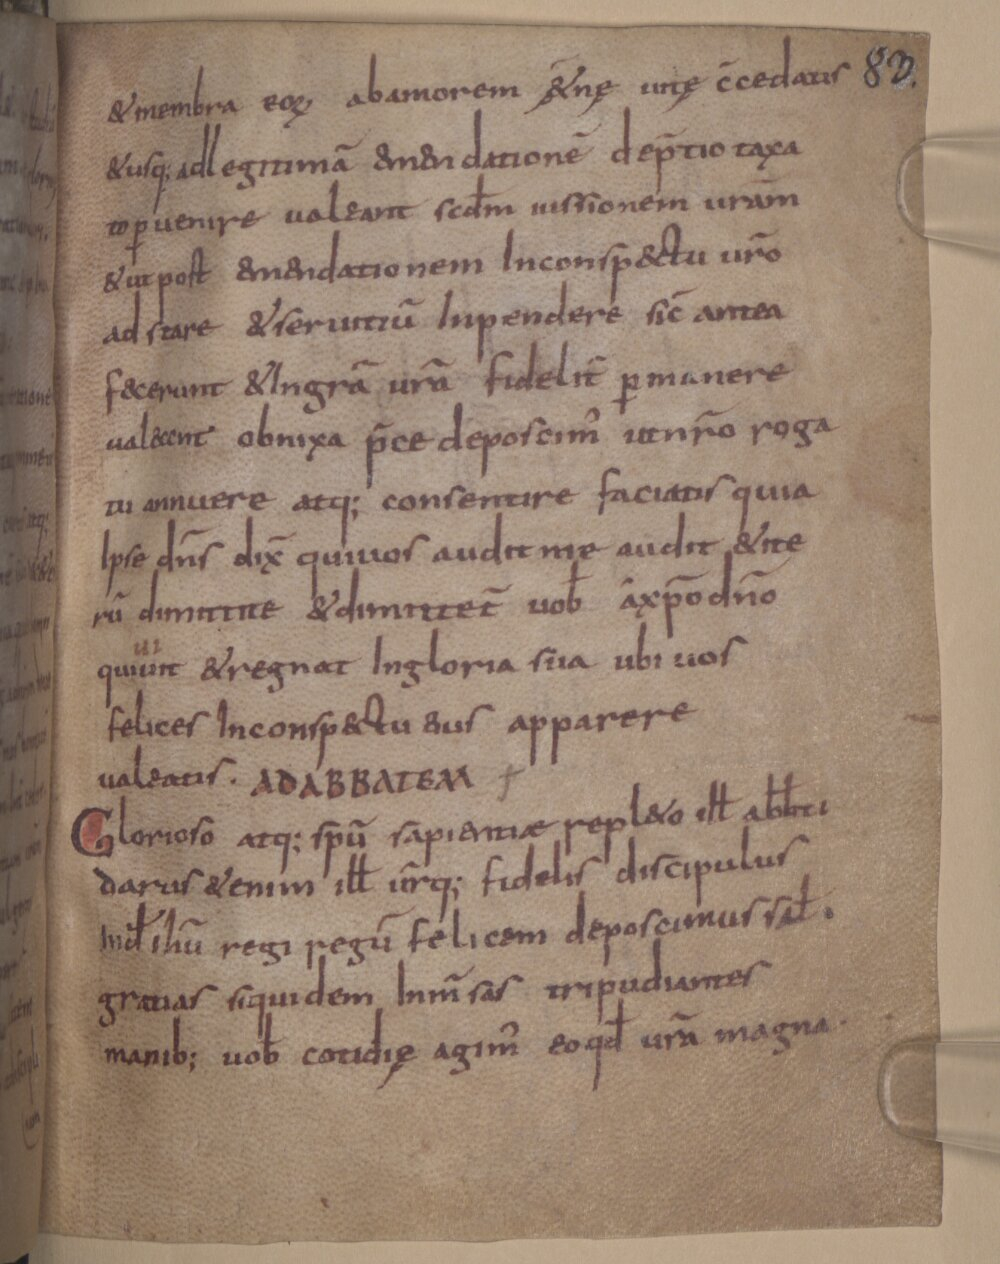 &membra eoꝝ abamorem &̄nę uitę c̄cedatis 83.
&usq; adlegitimā emendationē dep̄tiotaxa
to ꝑuenire ualeant scd̄m iussionem urām
&ut post emendationem Inconsp&ctu ur̄o
ad stare &seruitiū Inpendere sic̄ antea
fecerunt &Ingrā urā fidelit̄ ꝑmanere
ualeant obnixa p̄ce deposcim᾽ utnr̄o roga
tu annuere atq; consentire faciatis quia
Ipse dn̄s dix̄ quiuos audit me audit &ite
rū dimittite &dimittet̄ uob̄ āxp̄o dn̄o
quiuit &regnat Ingloria sua ubi uos
ui
felices Inconsp&ctu eius apparere
ualeatis. ADABBATEM †
Glorioso atq; spū sapientiæ repl&o ill̄ abb̄ti
darus &enim ill̄ ur̄q; fidelis discipulus
Ind̄ ihū regi regū felicem deposcimus sal̄.
gratias siquidem Inm̄sas tripudiantes
manib; uob̄ cotidię agim᾽ eo qd̄ urā magna